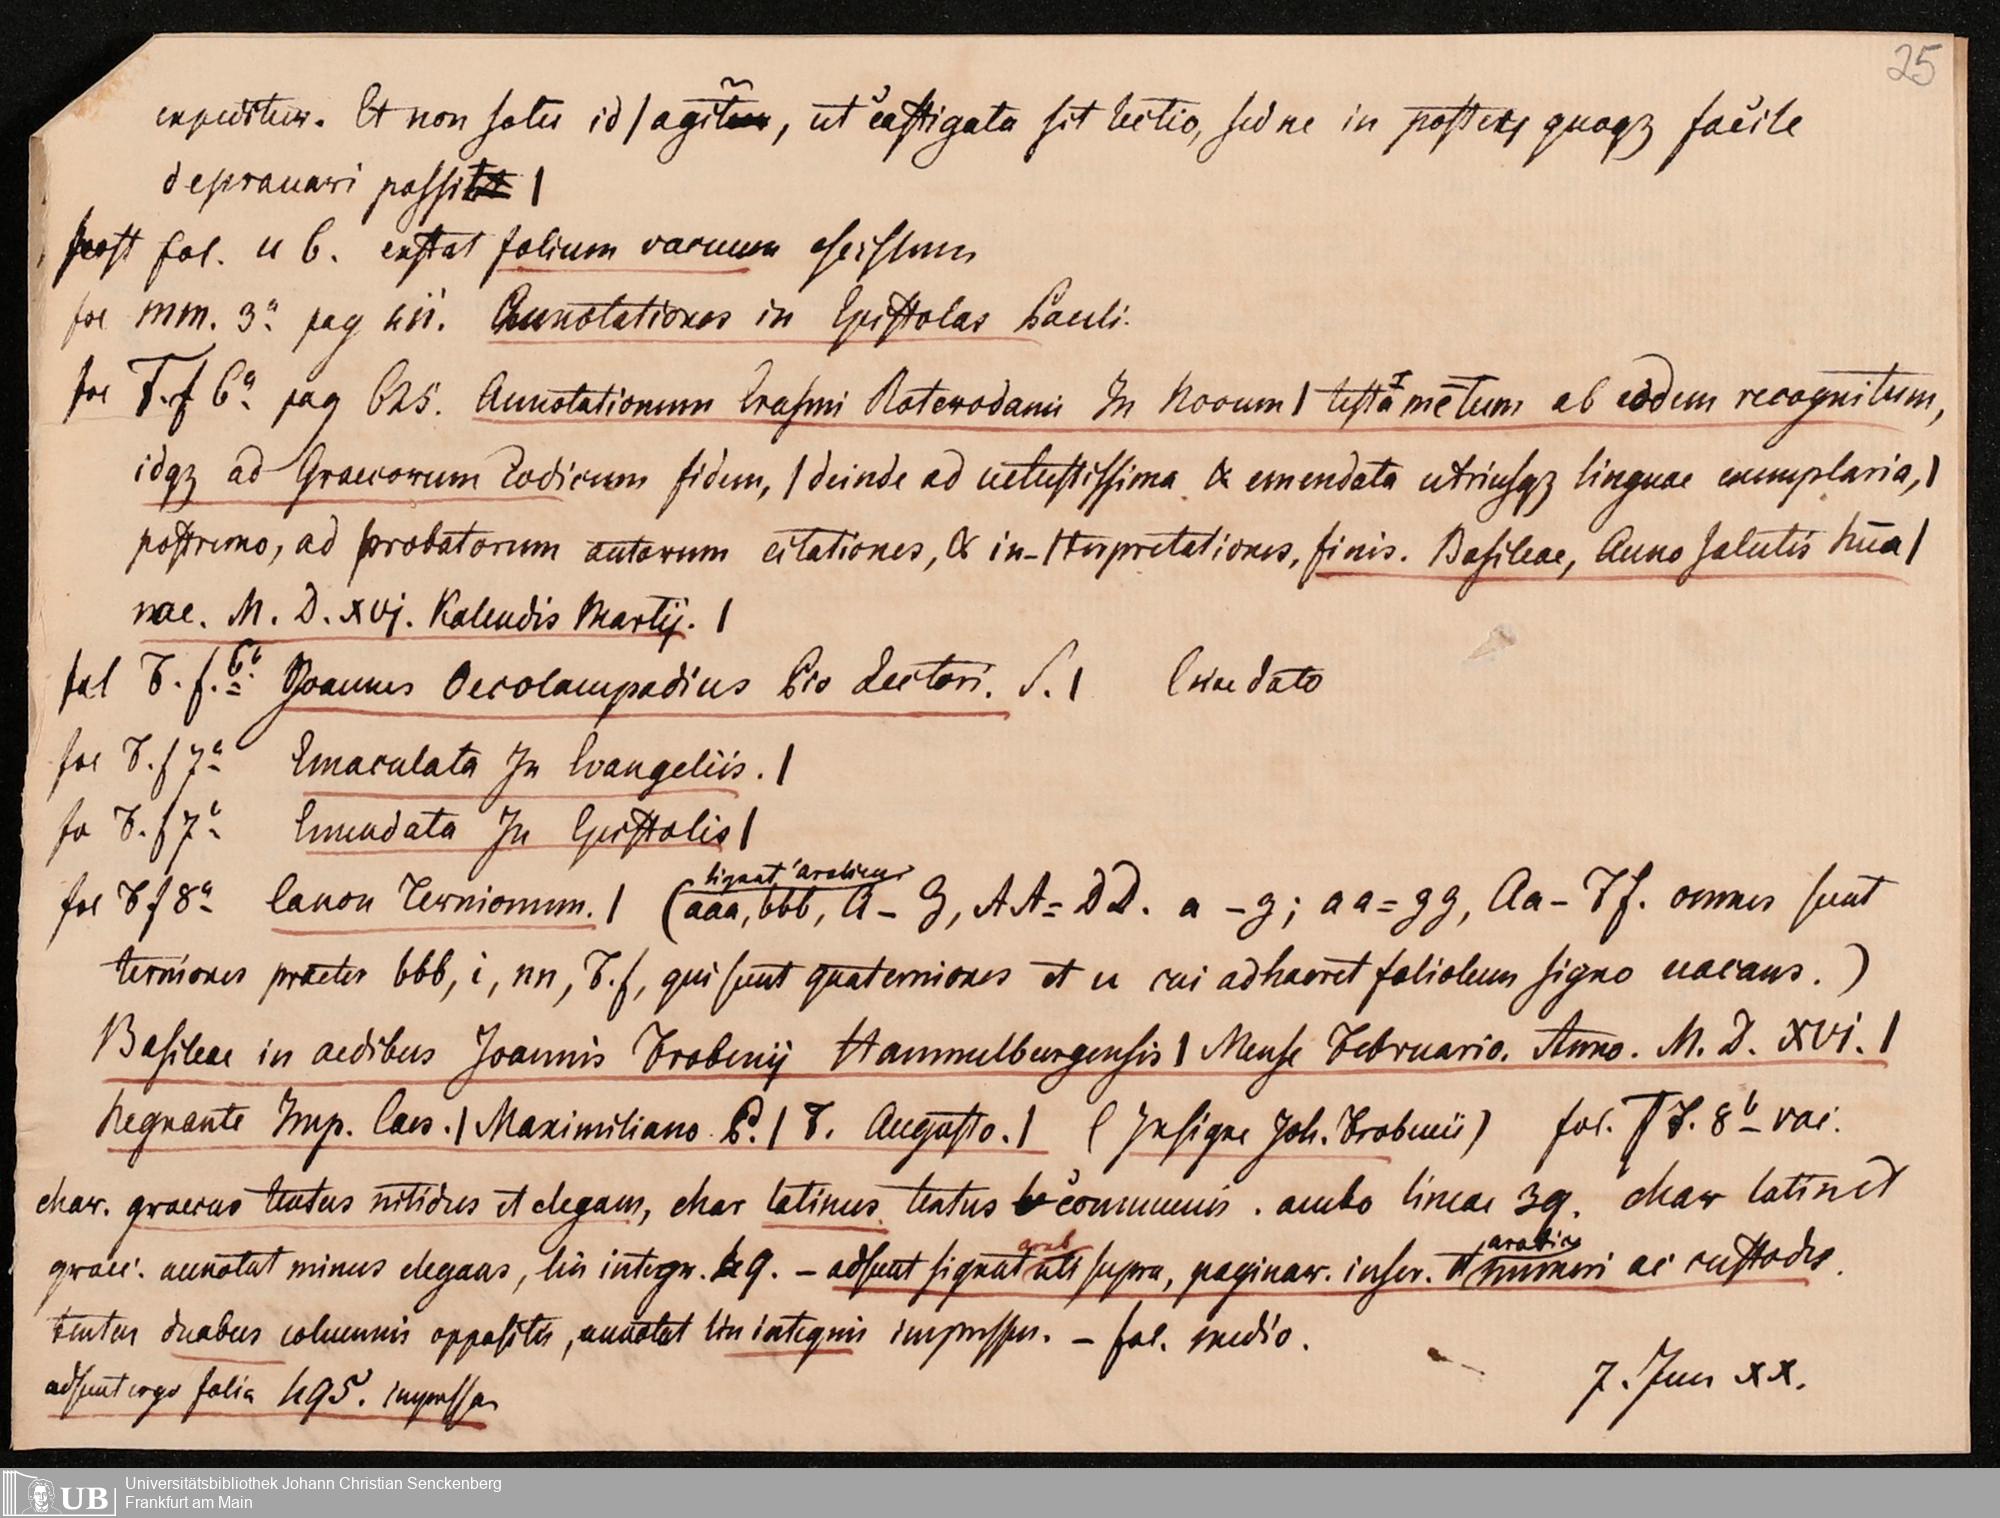 25
expeditur. Et non solū id / agit, ut castigata sit lectio, sed ne in posterū quoqꝫ facile
deprauari possit /
post fol. u 6. exstat folium vacuum
fol mm. 3ᵃ pag 411. Annotationes in Epistolas Pauli.
fol F.f 6ᵃ pag 625. Annotationum Erasmi Roterodami In Novum / testamētum ab eodem recognitum,
idqꝫ ad Graecorum Codicum fidem, / deinde ad uetustissima & emendata utriusqꝫ linguae exemplaria, /
postremo, ad probatorum autorum citationes, & in-/terpretationes, finis. Basileae, Anno salutis hūa /
nae. M. D. xvj. Kalendis Martij. /
fol F. f. 6ᵇ Joannes Oecolampadius Pio Lectori. S. / sine dato
fol F. f 7ᵃ Emaculata In Evangeliis. /
fo F. f 7ᵇ Emendata In Epistolis /
signat arabicae
fol F f 8ᵃ Canon Ternionum. / (aaa, bbb, A – Z, AA = DD. a – z; aa = zz, Aa – Ff. omnes sunt
terniones praeter bbb, i, nn, F.f, qui sunt quaterniones et u cui adhaeret foliolum signo uacans.)
Basileae in aedibus Joannis Frobenij Hammelburgensis / Mense Februario. Anno. M. D. xvi. /
Regnante Imp. Caes. / Maximiliano P. / F. Augusto. / (Insigne Joh. Frobenii) fol. F F. 8ᵇ vac.
char. graecus textus nitidus et elegans, char latinus textus communis. ambo lineae 39. char latin et
arab arabic
graec. annotat minus elegans, lin integr. 49. – adsunt signat uti supra, paginar. inscr. numeri ac custodes.
textus duabus columnis oppositis, annotat lin integris impressus. – fol. medio.
7. Jun xx.
adsunt ergo folia 495. impressa
UB Universitätsbibliothek Johann Christian Senckenberg
Frankfurt am Main